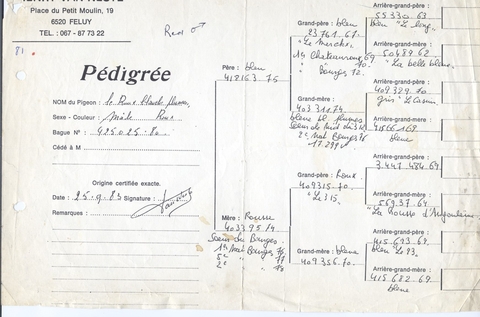 Place du Petit Moulin, 19
6520 FELUY
TEL. : 067 - 87 73 22
Red ♂
81
Pédigrée
NOM du Pigeon :
Sexe - Couleur : Mâle Roux
Bague N° : 425025.80
Cédé à M
Origine certifiée exacte.
Date : 25.9.83 Signature :
Remarques :
Père : bleu
418163.75
Mère : Rousse
403395.74
Soeur du Bourges
1er Nat Bourges 76
5e " " 77
2e " " 78
Grand-père : bleu
23761.67
"Le Merckx"
1er Chateauroux 69
" " 70
" Bourges 72
Grand-mère :
403311.74
bleue pl. plumes
2e Nat Bourges 76
17.292
Grand-père : Roux
409315.70
"Le 315"
Grand-mère : bleue
409356.70
Arrière-grand-père :
55330.63
bleu "Le long"
Arrière-grand-mère :
50489.62
"La belle bleue"
Arrière-grand-père :
409329.70
gris
Arrière-grand-mère :
bleue
Arrière-grand-père :
3.447.484.69
Arrière-grand-mère :
56937.64
"La Rousse d'Angoulême"
Arrière-grand-père :
415.693.69
bleu Le 93
Arrière-grand-mère :
415682.69
bleue